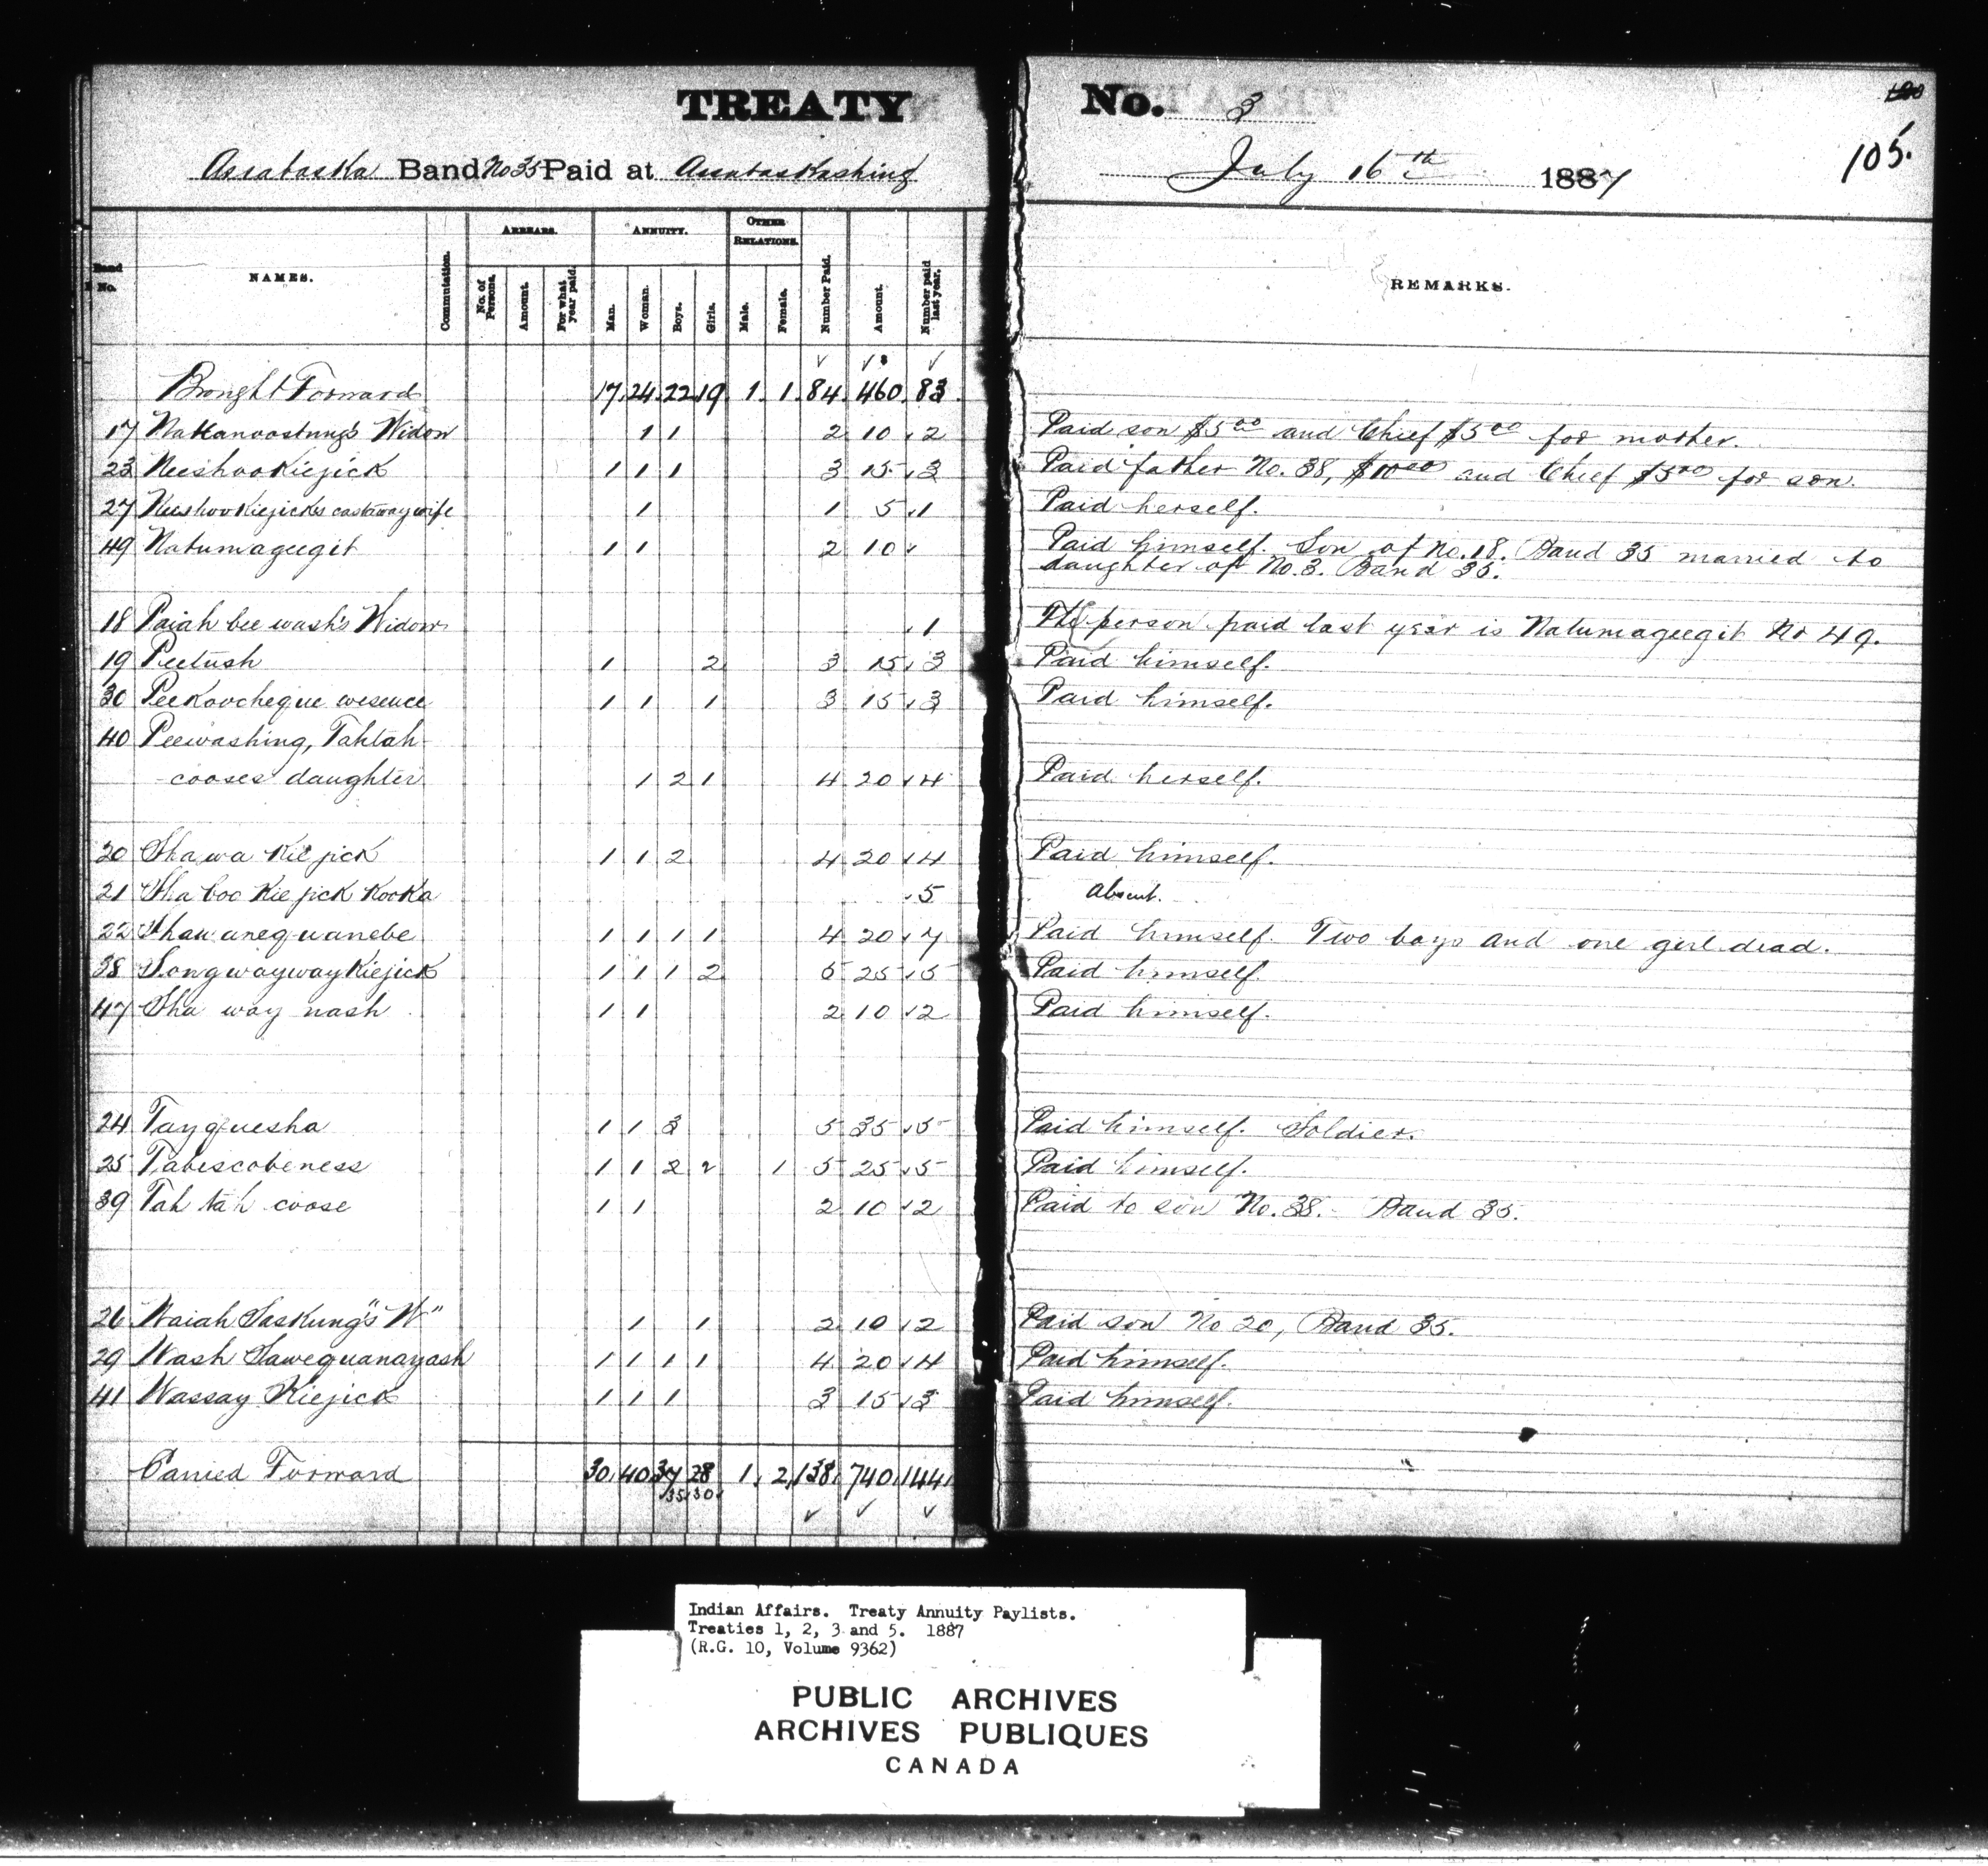 TREATY No. 3
105.
Assabaska Band No 35 Paid at Assabaskashing July 16th 1887
Band No. NAMES. Commutation. ARREARS. No. of Persons. Amount. For what year paid. ANNUITY. Man. Woman. Boys. Girls. OTHER RELATIONS. Male. Female. Number Paid. Amount. Number paid last year. REMARKS.
Brought Forward 17 24 22 19 1 1 84 460 83
17 Nattanoostung's Widow 1 1 2 10 2 Paid son $5.00 and Chief $5.00 for mother.
23 Neeshoo Kiejick 1 1 1 3 15 3 Paid father No. 38, $10.00 and Chief $5.00 for son.
27 Neeshoo Kiejick's castaway wife 1 1 5 1 Paid herself.
49 Natumageegit 1 1 2 10 Paid himself. Son of No. 18. Band 35 married to
daughter of No. 3. Band 35.
18 Paiah bee wash's Widow 1 The person paid last year is Natumageegit No 49.
19 Peetush 1 2 3 15 3 Paid himself.
30 Peekoocheque wesence 1 1 1 3 15 3 Paid himself.
40 Peewashing, Tahtah
cooses daughter 1 2 1 4 20 4 Paid herself.
20 Sha wa Kie jick 1 1 2 4 20 4 Paid himself.
21 Sha boo Kie jick Kooka 5 Absent.
22 Shaw aneg uanebe 1 1 1 1 4 20 7 Paid himself. Two boys and one girl dead.
38 Songwayway Kiejick 1 1 1 2 5 25 5 Paid himself.
47 Sha way nash 1 1 2 10 2 Paid himself.
24 Tayquesha 1 1 3 5 35 5 Paid himself. Soldier.
25 Tabescobeness 1 1 2 2 1 5 25 5 Paid himself.
39 Tah tah coose 1 1 2 10 2 Paid to son No. 38. Band 35.
26 Waiah Saskung's "W" 1 1 2 10 2 Paid son No 20, Band 35.
29 Wash Sawequanayash 1 1 1 1 4 20 4 Paid himself.
41 Wassay Kiejick 1 1 1 3 15 3 Paid himself.
Carried Forward 30 40 37 28 1 2 138 740 144
35 30
Indian Affairs. Treaty Annuity Paylists.
Treaties 1, 2, 3 and 5. 1887
(R.G. 10, Volume 9362)
PUBLIC ARCHIVES
ARCHIVES PUBLIQUES
CANADA